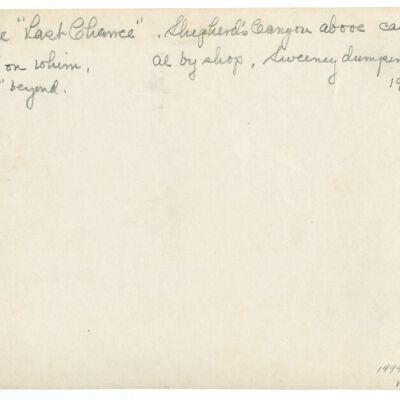 e "Last Chance". Shepherd's Canyon above ca
on whim, al by shop, Sweeney dumpin
" beyond. 19
1999